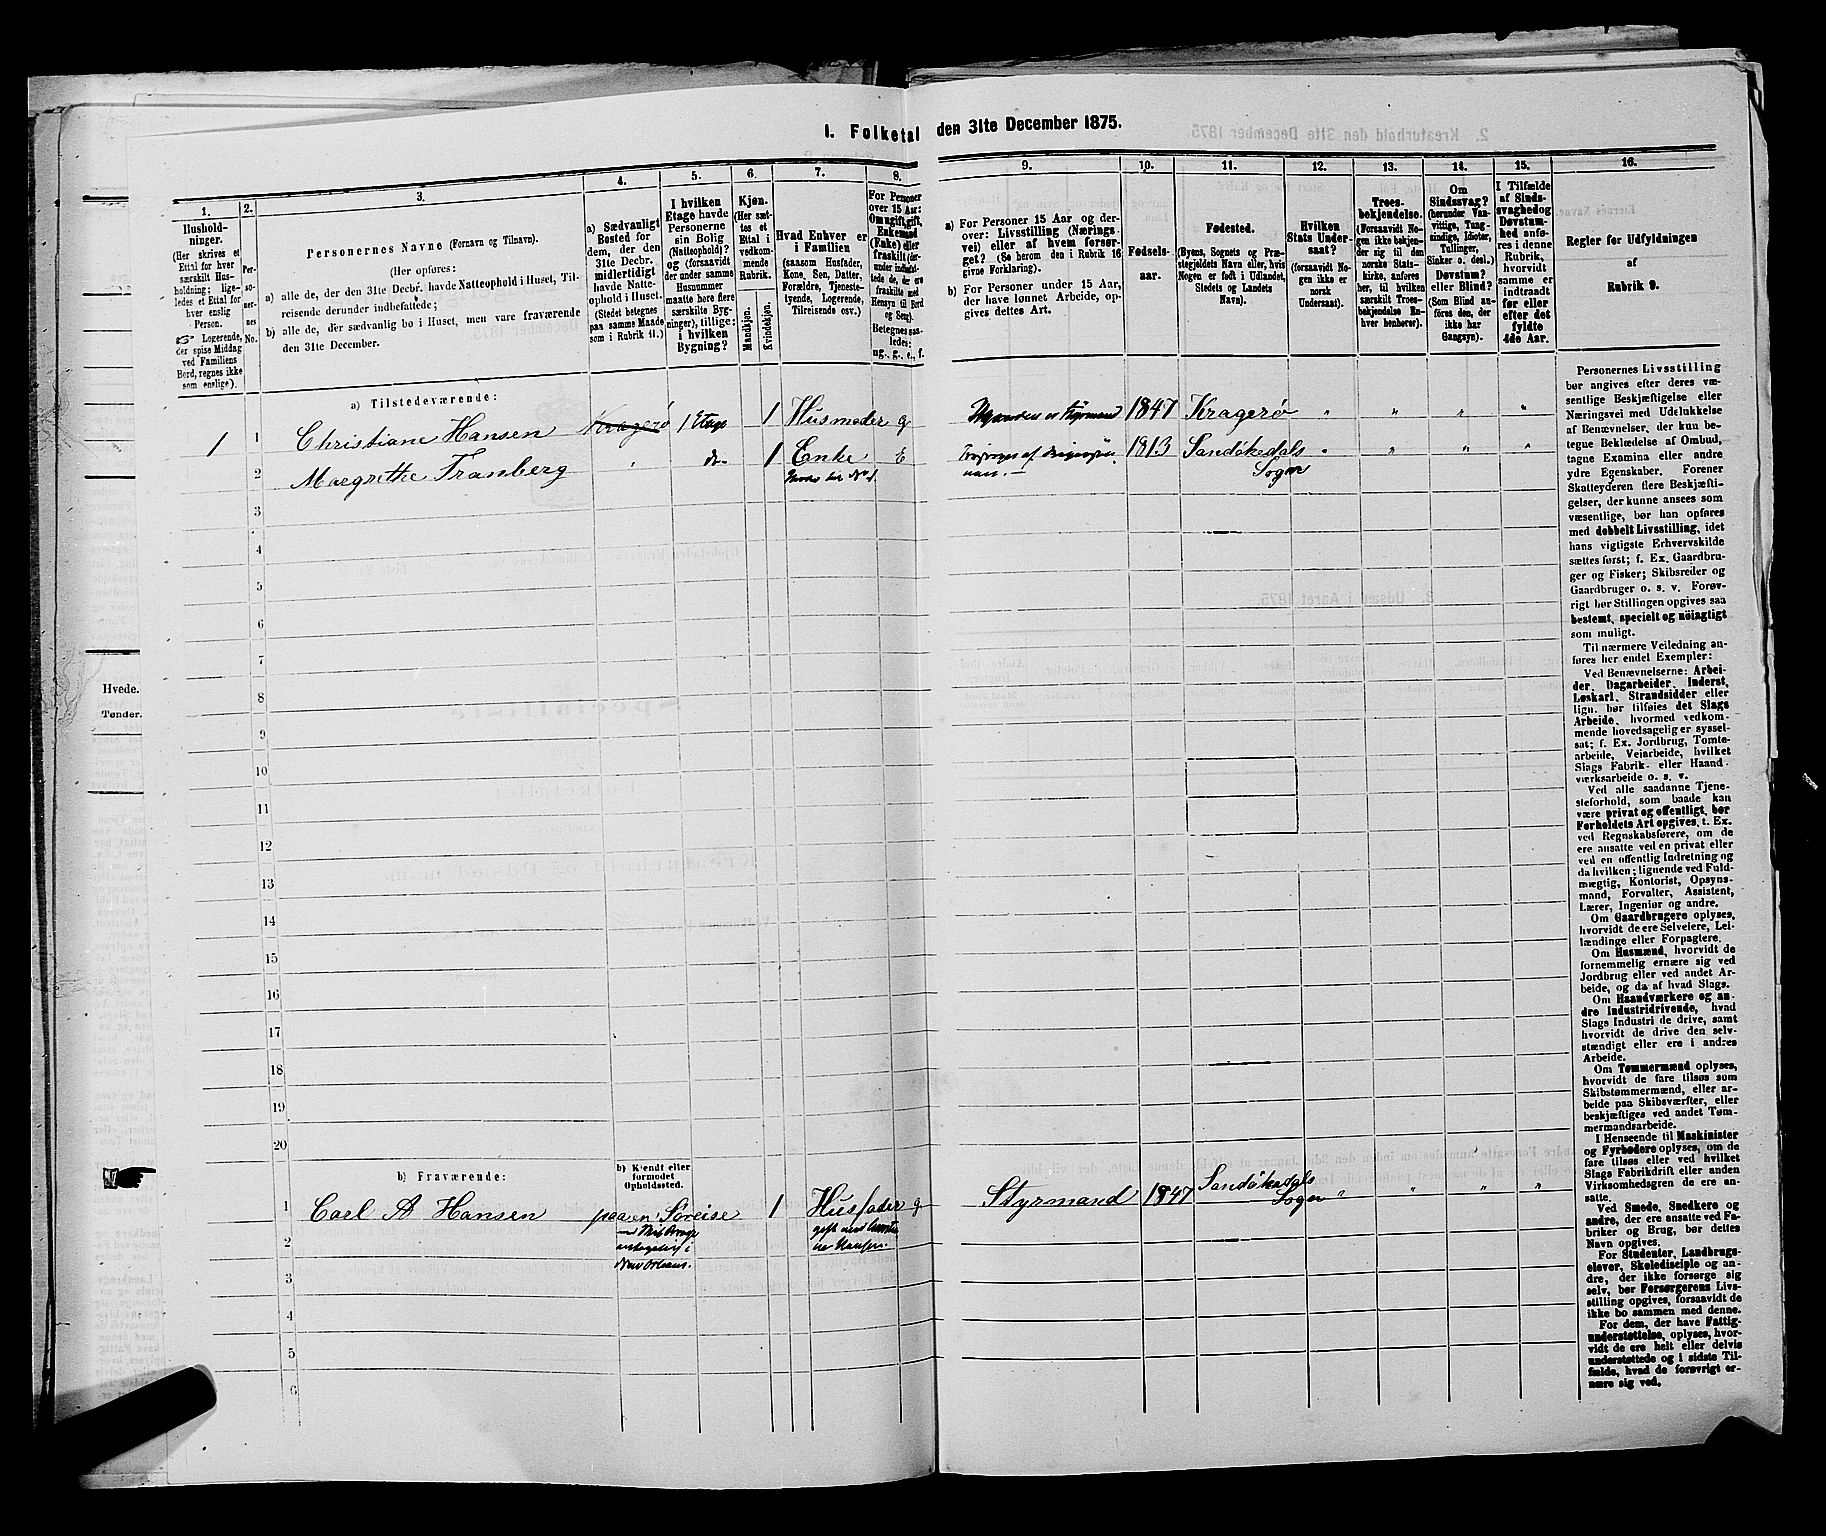 1. Folketal den 31te December 1875.
1. 2. 3. 4. 5. 6. 7. 8. 9. 10. 11. 12. 13. 14. 15. 16.
Hushold-
ninger.
(Her skrives et
Ettal for hver
særskilt Hus-
holdning; lige-
ledes et Ettal for
hver enslig
Person.
☞ Logerende,
der spise Middag
ved Familiens
Bord, regnes ikke
som enslige).
Per-
so-
ner-
nes
No.
Personernes Navne (Fornavn og Tilnavn).
(Her opføres:
a) alle de, der den 31te Decbr. havde Natteophold i Huset, Til-
reisende derunder indbefattede;
b) alle de, der sædvanlig bo i Huset, men vare fraværende
den 31te December.
a) Sædvanligt
Bosted for
dem, der den
31te Decbr.
midlertidigt
havde Natte-
ophold i Huset.
(Stedet betegnes
paa samme Maade
som i Rubrik 11.)
I hvilken
Etage havde
Personerne
sin Bolig
(Natteophold)?
og (forsaavidt
der under samme
Husnummer
maatte høre flere
særskilte Byg-
ninger), tillige:
i hvilken
Bygning?
Kjøn.
(Her sæt-
tes et
Ettal i
vedkom-
mende
Rubrik.
Mandkjøn.
Kvindekjøn.
Hvad Enhver er
i Familien
(saasom Husfader,
Kone, Søn, Datter,
Forældre, Tjeneste-
tyende, Logerende,
Tilreisende osv.)
For Personer
over 15 Aar:
Om ugift, gift,
Enkemand
(Enke) eller
fraskilt (der-
under indbefat-
tede de, der ere
fraskilte med
Hensyn til Bord
og Seng).
Betegnes saa-
ledes:
ug., g., e., f.
a) For Personer 15 Aar og der-
over: Livsstilling (Nærings-
vei) eller af hvem forsør-
get? (Se herom den i Rubrik 16
givne Forklaring).
b) For Personer under 15 Aar,
der have lønnet Arbeide, op-
gives dettes Art.
Fødsels-
aar.
Fødested.
(Byens, Sognets og Præ-
stegjeldets Navn eller, hvis
Nogen er født i Udlandet,
Stedets og Landets
Navn).
Hvilken
Stats Under-
saat?
(forsaavidt No-
gen ikke er
norsk
Undersaat).
Troes-
bekjendelse.
(Forsaavidt No-
gen ikke bekjen-
der sig til den
norske Stats-
kirke, anføres
her, til hvilken
særskilt Troes-
bekjendelse En-
hver henhører).
Om
Sindssvag?
(herunder Van-
vittige, Tung-
sindige, Idioter,
Tullinger,
Sinker o. desl.)
Døvstum?
eller Blind?
(Som Blind an-
føres den, der
ikke har
Gangsyn).
I Tilfælde
af Sinds-
svaghed og
Døvstum-
hed anfø-
res i denne
Rubrik,
hvorvidt
samme er
indtraadt
før eller
efter det
fyldte
4de Aar.
Regler for Udfyldningen
af
Rubrik 9.
a) Tilstedeværende:
1 1 Christiane Hansen Kragerø 1 Etage 1 Husmoder g Manden er Styrmand 1847 Kragerø " " " "
2 Margrethe Framberg " do 1 Enke E 1813 Sandøkedals " " " "
Sogn
3
4
5
6
7
8
9
10
11
12
13
14
15
16
17
18
19
20
b) Fraværende:
b) Kjendt eller
formodet
Opholdssted.
1 Carl A Hansen paa en Søreise 1 Husfader g Styrmand 1847 Sandøkedals Sogn " " " "
2
New Orleans.
3
4
5
6
Personernes Livsstilling
bør angives efter deres væ-
sentlige Beskjæftigelse eller
Næringsvei med Udelukkelse
af Benævnelser, der kun be-
tegne Beklædelse af Ombud,
tagne Examina eller andre
ydre Egenskaber. Forener
Skatteyderen flere Beskjæfti-
gelser, der kunne ansees som
væsentlige, bør han opføres
med dobbelt Livsstilling, idet
hans vigtigste Erhvervskilde
sættes først; f. Ex. Gaardbru-
ger og Fisker; Skibsreder og
Gaardbruger o. s. v. Forøv-
rigt bør Stillingen opgives saa
bestemt, specielt og nøiagtigt
som muligt.
Til nærmere Veiledning an-
føres her endel Exempler:
Ved Benævnelserne: Arbei-
der, Dagarbeider, Inderst,
Løskarl, Strandsidder eller
lign. bør tilføies det Slags
Arbeide, hvormed vedkom-
mende hovedsagelig er syssel-
sat; f. Ex. Jordbrug, Tomte-
arbeide, Veiarbeide, hvilket
Slags Fabrik- eller Haand-
værksarbeide o. s. v.
Ved alle saadanne Tjene-
steforhold, som baade kan
være privat og offentligt, bør
Forholdets Art opgives, t. Ex.
ved Regnskabsførere, om de
ere ansatte ved en privat eller
ved en offentlig Indretning og
da hvilken; lignende ved Fuld-
mægtig, Kontorist, Opsyns-
mand, Forvalter, Assistent,
Lærer, Ingeniør og andre.
Om Gaardbrugere oplyses,
hvorvidt de ere Selveiere, Lei-
lændinge eller Forpagtere.
Om Husmænd, hvorvidt de
fornemmelig ernære sig ved
Jordbrug eller ved andet Ar-
beide, og da af hvad Slags.
Om Haandværkere og an-
dre Industridrivende, hvad
Slags Industri de drive, samt
hvorvidt de drive den selv-
stændigt eller ere i andres
Arbeide.
Om Tømmermænd oplyses,
hvorvidt de fare tilsøs som
Skibstømmermænd, eller ar-
beide paa Skibsværfter, eller
beskjæftiges ved andet Tøm-
mermandsarbeide.
I Henseende til Maskinister
og Fyrbødere oplyses, om de
fare tilsøs eller ved hvilket
Slags Fabrikdrift eller anden
Virksomhedsgren de ere an-
satte.
Ved Smede, Snedkere og
andre, der ere ansatte ved Fa-
briker og Brug, bør dettes
Navn opgives.
For Studenter, Landbrugs-
elever, Skoledisciple og an-
dre, der ikke forsørge sig
selv, bør Forsørgerens Livs-
stilling opgives, forsaavidt de
ikke bo sammen med denne.
For dem, der have Fattig-
understøttelse, oplyses, hvor-
vidt de ere helt eller delvis
understøttede og i sidste Til-
fælde, hvad de forøvrigt er-
nære sig ved.
Hvede.
Tønder.